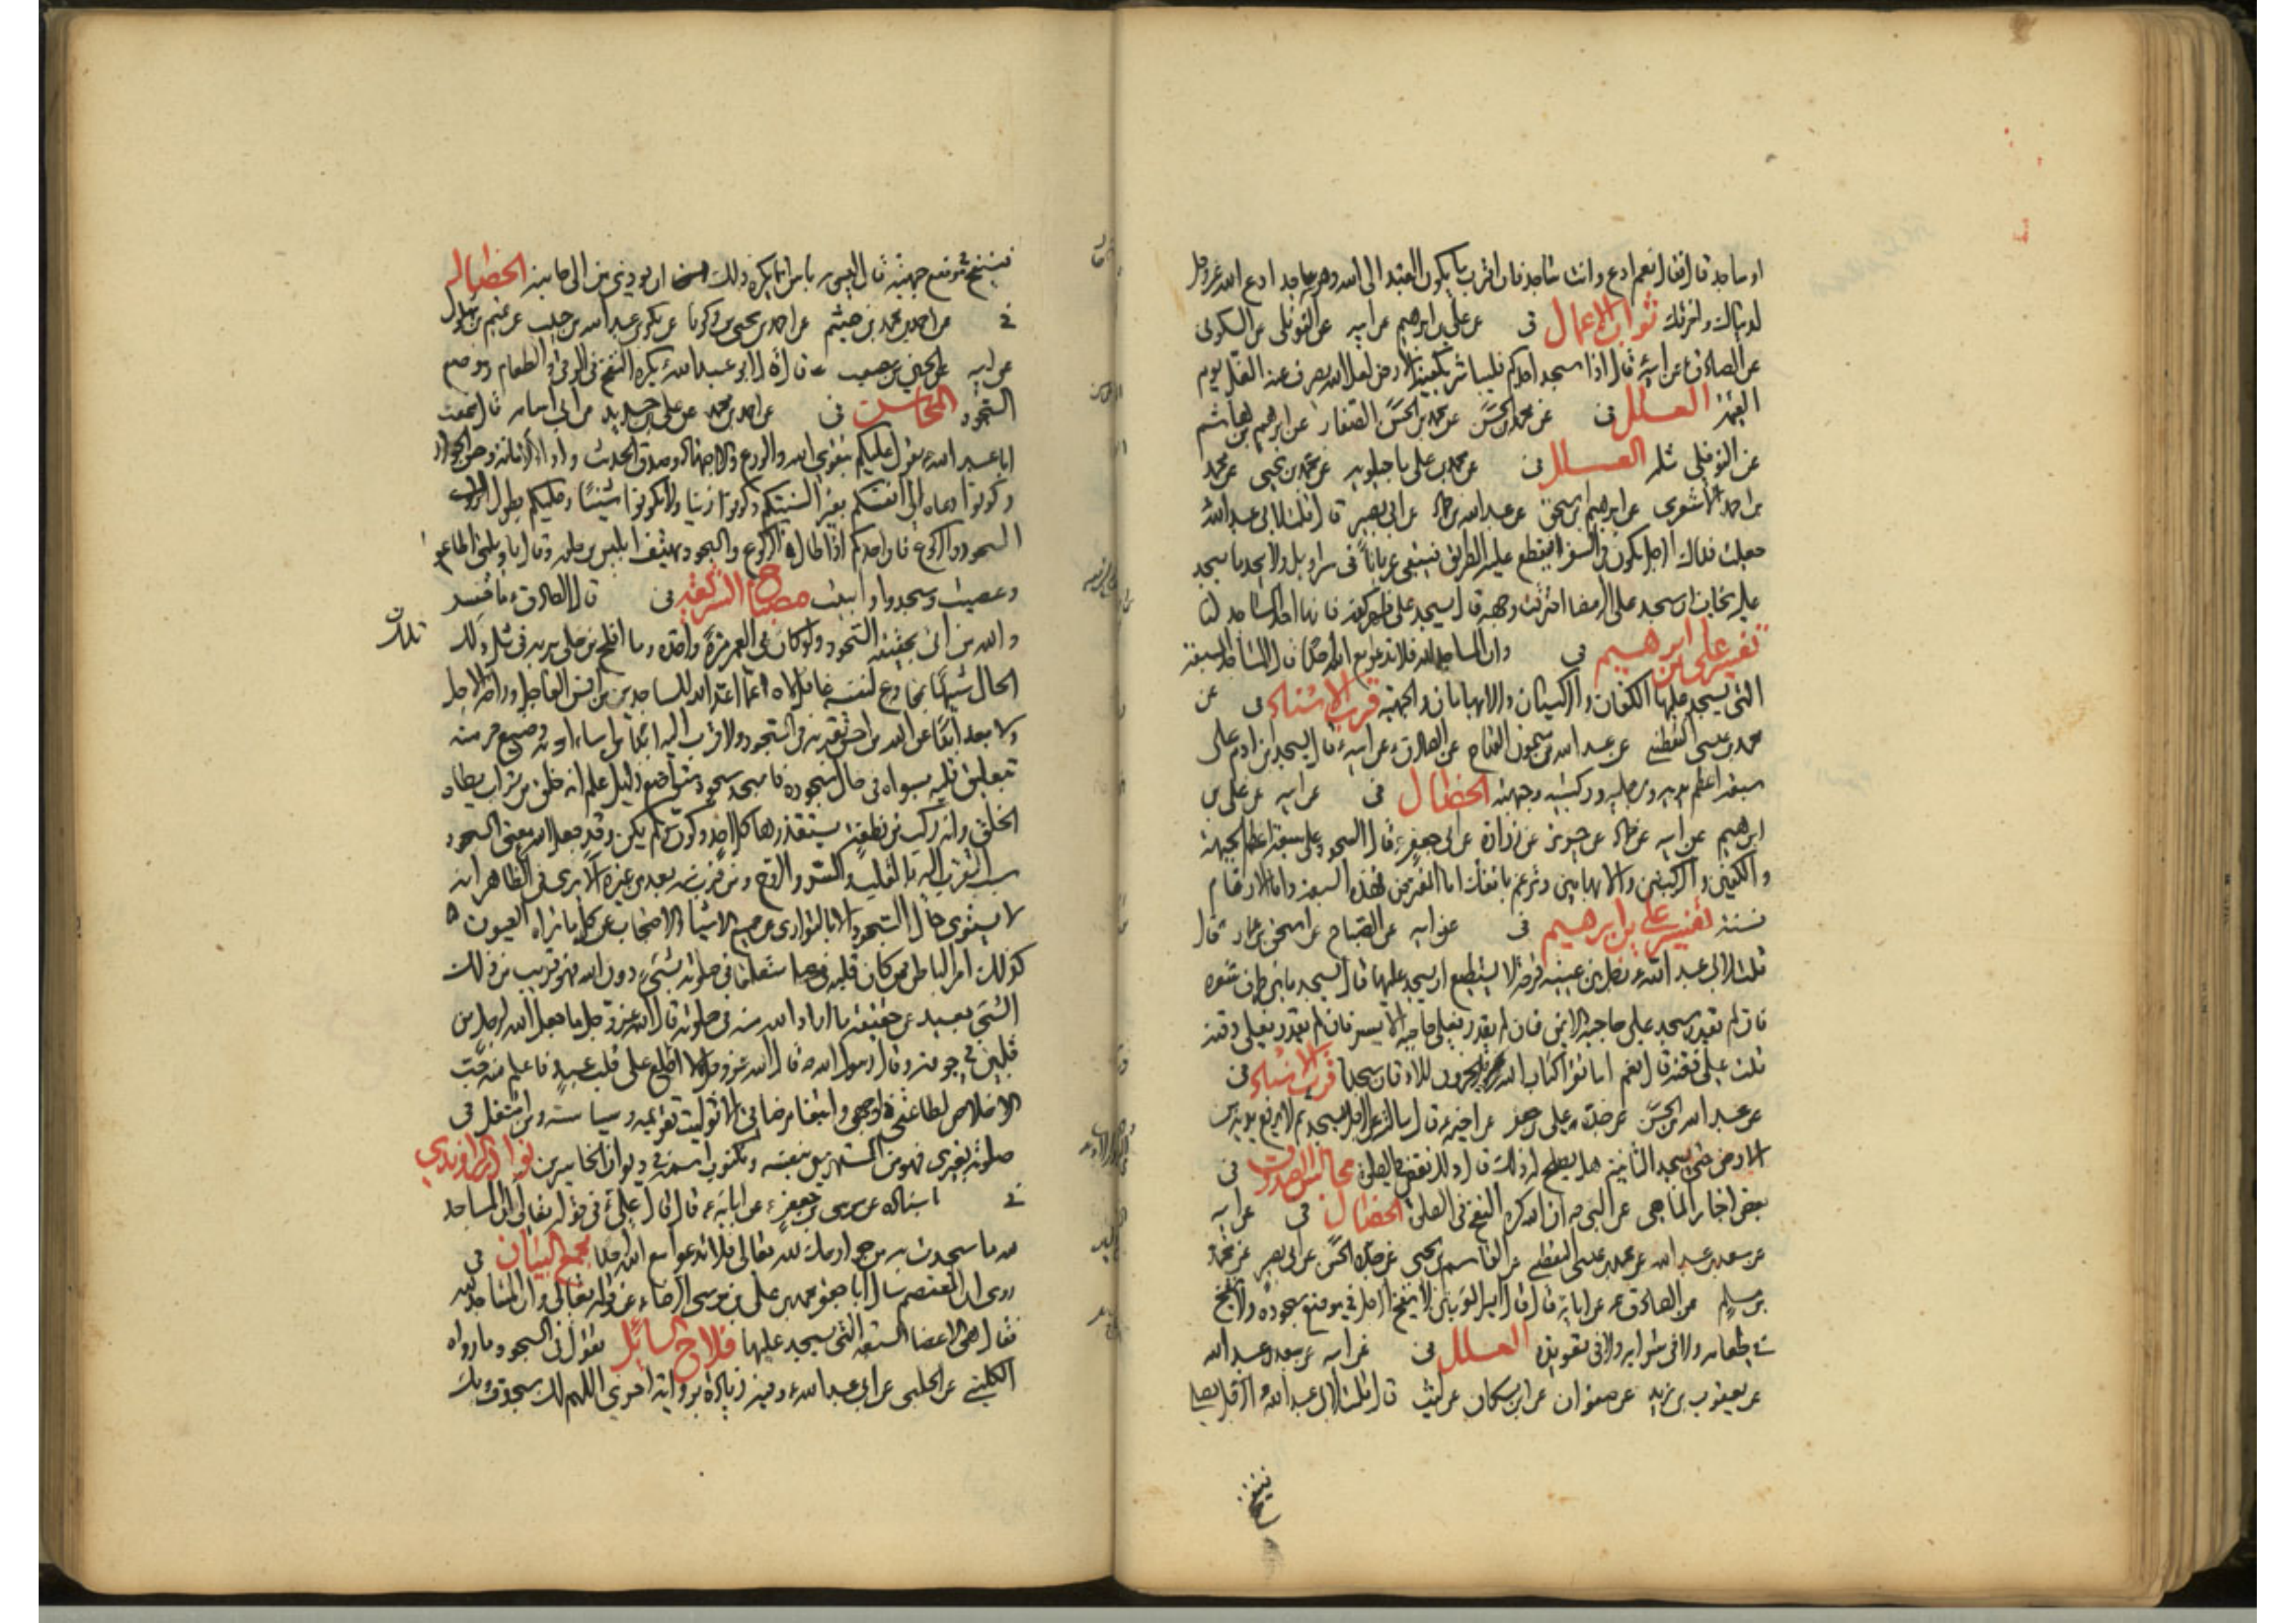 او ساجد قال فقال نعم ادع وانت ساجد فان اقرب ما يكون العبد الى الله وهو ساجد ادع الله عز وجل
لدنياك واخرتك ثواب الاعمال فى عن على بن ابراهيم عن ابيه عن النوفلى عن السكونى
عن الصادق عن ابيه قال اذا سجد احدكم فليباشر بكفيه الارض لعل الله يصرف عنه الغل يوم
القيمة العلل فى عن محمد بن الحسن عن محمد بن الحسن الصفار عن ابرهيم بن هاشم
عن النوفلى مثله العلل فى عن محمد بن على ماجيلويه عن محمد بن يحيى عن محمد
بن احمد الاشعرى عن ابرهيم بن اسحق عن عبد الله بن حماد عن ابى بصير قال قلت لابى عبد الله
جعلت فداك الرجل يكون فى السفر فيقطع عليه الطريق فيبقى عريانا فى سراويل ولا يجد ما يسجد
عليه يخاف ان سجد على الرمضا احترقت وجهه قال يسجد على ظهر كفه فانها احد المساجد
تفسير على بن ابرهيم فى وان المساجد لله فلا تدعوا مع الله احدا قال المساجد السبعة
التى يسجد عليها الكفان والركبتان والابهامان والجبهة قرب الاسناد فى عن
محمد بن عيسى اليقطينى عن عبد الله بن ميمون القداح عن الصادق عن ابيه قال يسجد ابن ادم على
سبعة اعظم يديه ورجليه وركبتيه وجبهته الخصال فى عن ابيه عن على بن
ابرهيم عن ابيه عن حماد عن حريز عن زرارة عن ابى جعفر قال السجود على سبعة اعظم الجبهة
والكفين والركبتين والابهامين وترغم بانفك اما الفرض فهذه السبعة واما الارغام
فسنة تفسير على بن ابرهيم فى عن ابيه عن الصباح عن اسحق بن عمار قال
قلت لابى عبد الله رجل بين عينيه قرحة لا يستطيع ان يسجد عليها قال يسجد ما بين طرف شعره
فان لم يقدر سجد على حاجبه الايمن فان لم يقدر فعلى حاجبه الايسر فان لم يقدر فعلى ذقنه
قلت على ذقنه قال نعم اما تقرا كتاب الله يخرون للاذقان سجدا قرب الاسناد فى
عن عبد الله بن الحسن عن جده على بن جعفر عن اخيه قال سالته عن الرجل يسجد ثم لا يرفع يديه من
الارض حتى يسجد الثانية هل يصلح له ذلك قال ذلك نقص فى الصلوة مجالس الصدوق فى
بعض اخبار المناهى عن النبى انه كره النفخ فى الصلوة الخصال فى عن ابيه
عن سعد بن عبد الله عن محمد بن عيسى اليقطينى عن القاسم بن يحيى عن جده الحسن عن ابى بصير عن محمد
بن مسلم عن الصادق عن ابائه قال قال امير المؤمنين لا ينفخ الرجل فى موضع سجوده ولا ينفخ
فى طعامه ولا فى شرابه ولا فى تعويذه العلل فى عن ابيه عن سعد بن عبد الله
عن يعقوب بن يزيد عن صفوان عن ابن مسكان عن ليث قال قلت لابى عبد الله الرجل يصلى
فينفخ
فينفخ موضع جبهته قال ليس به باس انما يكره ذلك ان يوذى من الى جانبه الخصال
فى عن احمد بن محمد بن هيثم عن احمد بن يحيى بن زكريا عن بكر بن عبد الله بن حبيب عن تميم بن بهلول
عن ابيه عن الحسين بن مصعب قال قال ابو عبد الله يكره النفخ فى الرقى والطعام وموضع
السجود المحاسن فى عن احمد بن محمد عن على بن حديد عن ابى اسامه قال سمعت
ابا عبد الله يقول عليكم بتقوى الله والورع والاجتهاد وصدق الحديث واداء الامانة وحسن الجوار
وكونوا دعاة الى انفسكم بغير السنتكم وكونوا زينا ولا تكونوا شينا وعليكم بطول
السجود والركوع فان احدكم اذا طال الركوع والسجود يهتف ابليس من خلفه وقال يا ويلتى اطاعوا
وعصيت وسجدوا وابيت مصباح الشريعة فى قال الصادق ما خسر
والله من اتى بحقيقة السجود ولو كان فى العمر مرة واحدة وما افلح من خلى بربه فى مثل ذلك
الحال شبيها بمخادع لنفسه غافل لاه عما اعد الله للساجدين من انس العاجل وراحة الاجل
ولا بعد ابدا عن الله من احسن تقربه فى السجود ولا قرب اليه ابدا من اساء ادبه وضيع حرمته
بتعليق قلبه بسواه فى حال سجوده فاسجد سجود متواضع ذليل علم انه خلق من تراب يطاه
الخلق وانه ركب من نطفة يستقذرها كل احد وكون ولم يكن وقد جعل الله معنى السجود
سبب التقرب اليه بالقلب والسر والروح فمن قرب منه بعد من غيره الا يرى فى الظاهر انه
لا يستوى حال السجود الا بالتوارى عن جميع الاشياء والاحتجاب عن كل ما تراه العيون
كذلك امر الباطن فمن كان قلبه متعلقا فى صلوته بشىء دون الله فهو قريب من ذلك
الشىء بعيد عن حقيقة ما اراد الله منه فى صلوته قال الله عز وجل ما جعل الله لرجل من
قلبين فى جوفه وقال رسول الله قال الله عز وجل لا اطلع على قلب عبد فاعلم منه حب
الاخلاص لطاعتى لوجهى وابتغاء مرضاتى الا توليت تقويمه وسياسته ومن اشتغل فى
صلوته بغيرى فهو من المستهزئين بنفسه ومكتوب اسمه فى ديوان الخاسرين نوادر الراوندى
فى باسناده عن موسى بن جعفر عن ابائه قال قال على فى قوله تعالى وان المساجد
لله ما سجدت به من جوارحك لله تعالى فلا تدعوا مع الله احدا مجمع البيان فى
روى ان المعتصم سال ابا جعفر محمد بن على بن موسى الرضا عن قوله تعالى وان المساجد لله
فقال هى الاعضاء السبعة التى يسجد عليها فلاح السائل يقول فى السجود ما رواه
الكلينى عن الحلبى عن ابى عبد الله وفيه زيادة برواية اخرى اللهم لك سجدت وبك